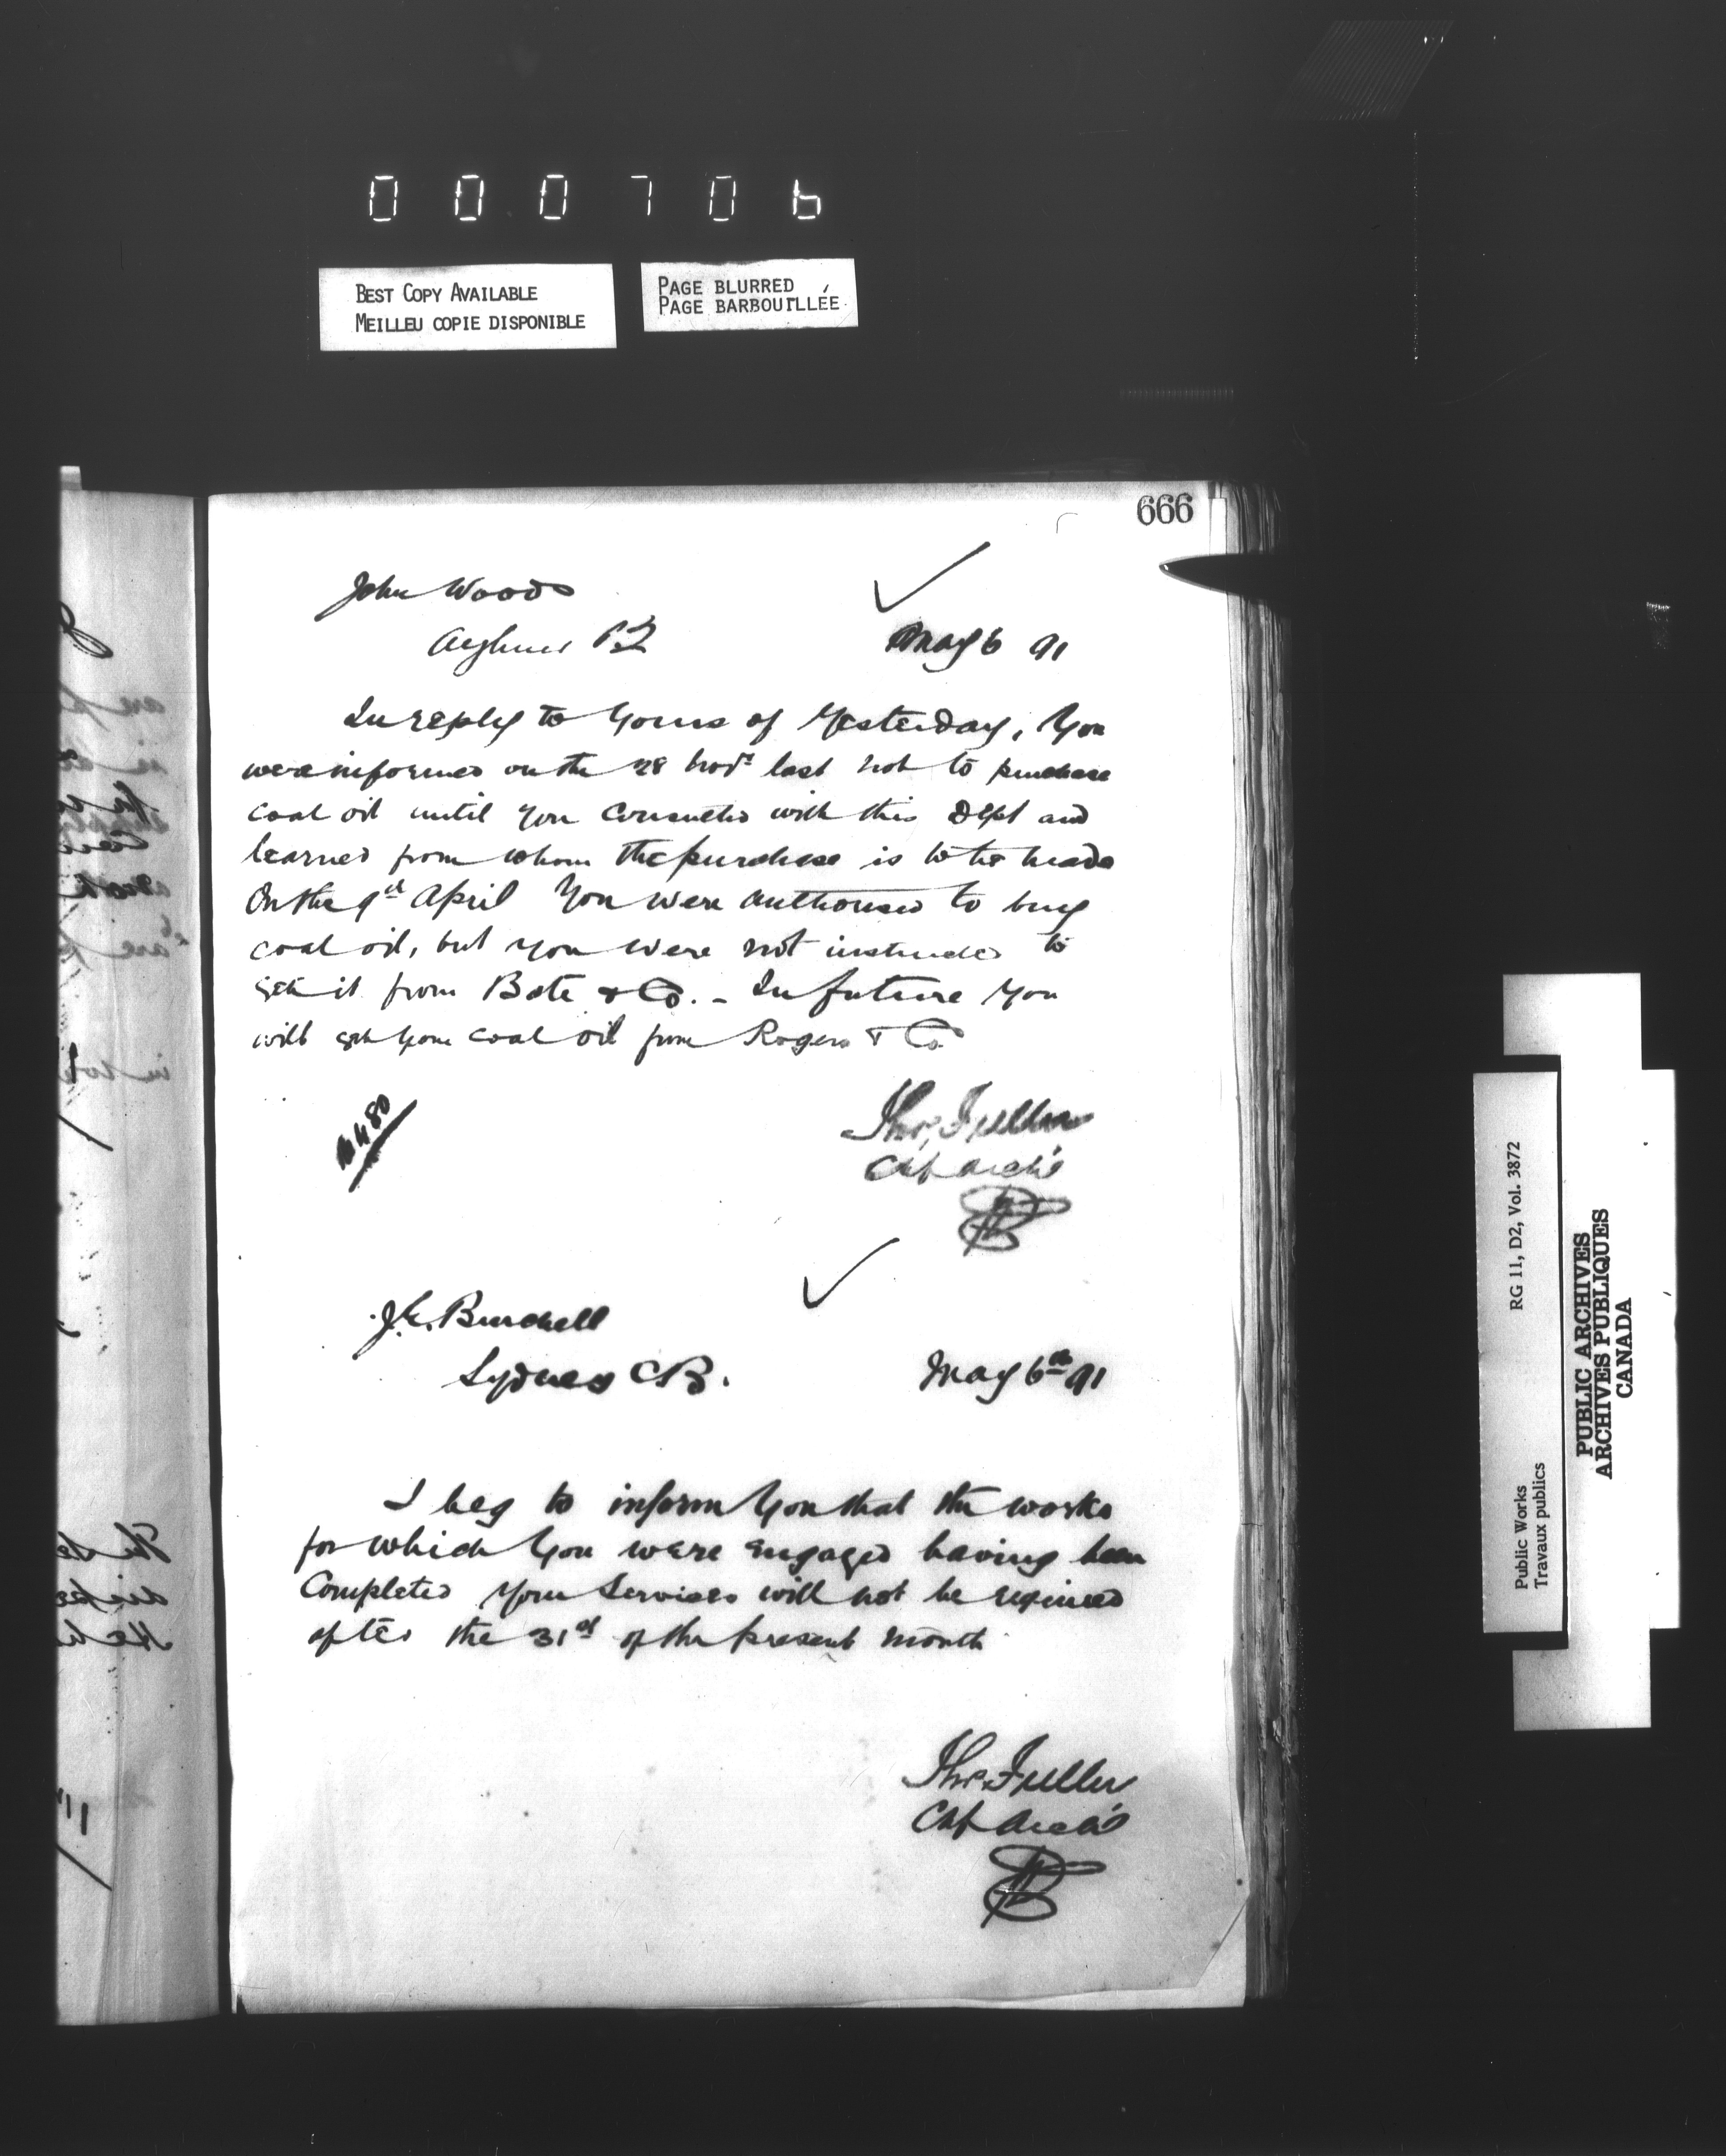 000706
BEST COPY AVAILABLE
MEILLEU COPIE DISPONIBLE
PAGE BLURRED
PAGE BARBOUILLÉE
666
John Woods
Aylmer P2
May 6 91
In reply to Yours of Yesterday, You
were informed on the 28 Novr last not to purchase
coal oil until you consulted with this Dept and
learned from whom the purchase is to be made
On the 9th April You were authorised to buy
coal oil, but you were not instructed to
get it from Bate & Co. - In future You
will get your coal oil from Rogers & Co
Thos. Fuller
Chf Archt
J.E. Burchell
Sydney CB.
May 6th 91
I beg to inform You that the works
for which You were engaged having been
Completed Your Services will not be required
after the 31st of the present month
Thos. Fuller
Chf Archt
Public Works
Travaux publics
RG 11, D2, Vol. 3872
PUBLIC ARCHIVES
ARCHIVES PUBLIQUES
CANADA